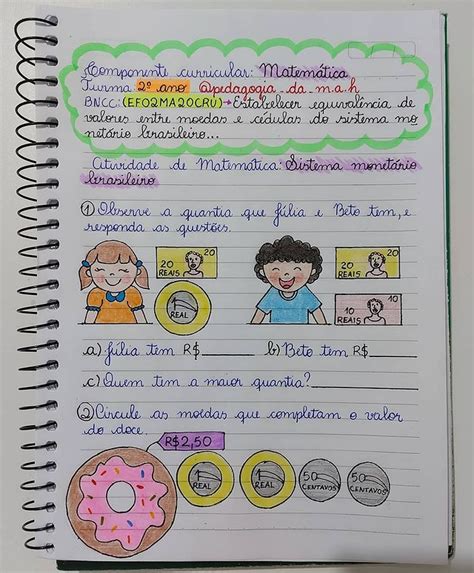 Componente curricular: Matemática
Turma: 2º ano @pedagogia.da.m.a.h
BNCC: (EF02MA20CRU) → Estabelecer equivalência de
valores entre moedas e cédulas do sistema mo
netário brasileiro...
Atividade de Matemática: Sistema monetário
brasileiro
1 Observe a quantia que Júlia e Beto tem, e
responda as questões.
20 20 REAIS
1 REAL
20 20 REAIS
10 10 REAIS
a) Júlia tem R$ b) Beto tem R$
c) Quem tem a maior quantia?
2 Circule as moedas que completam o valor
do doce.
R$2,50
1 REAL 1 REAL 50 CENTAVOS 50 CENTAVOS